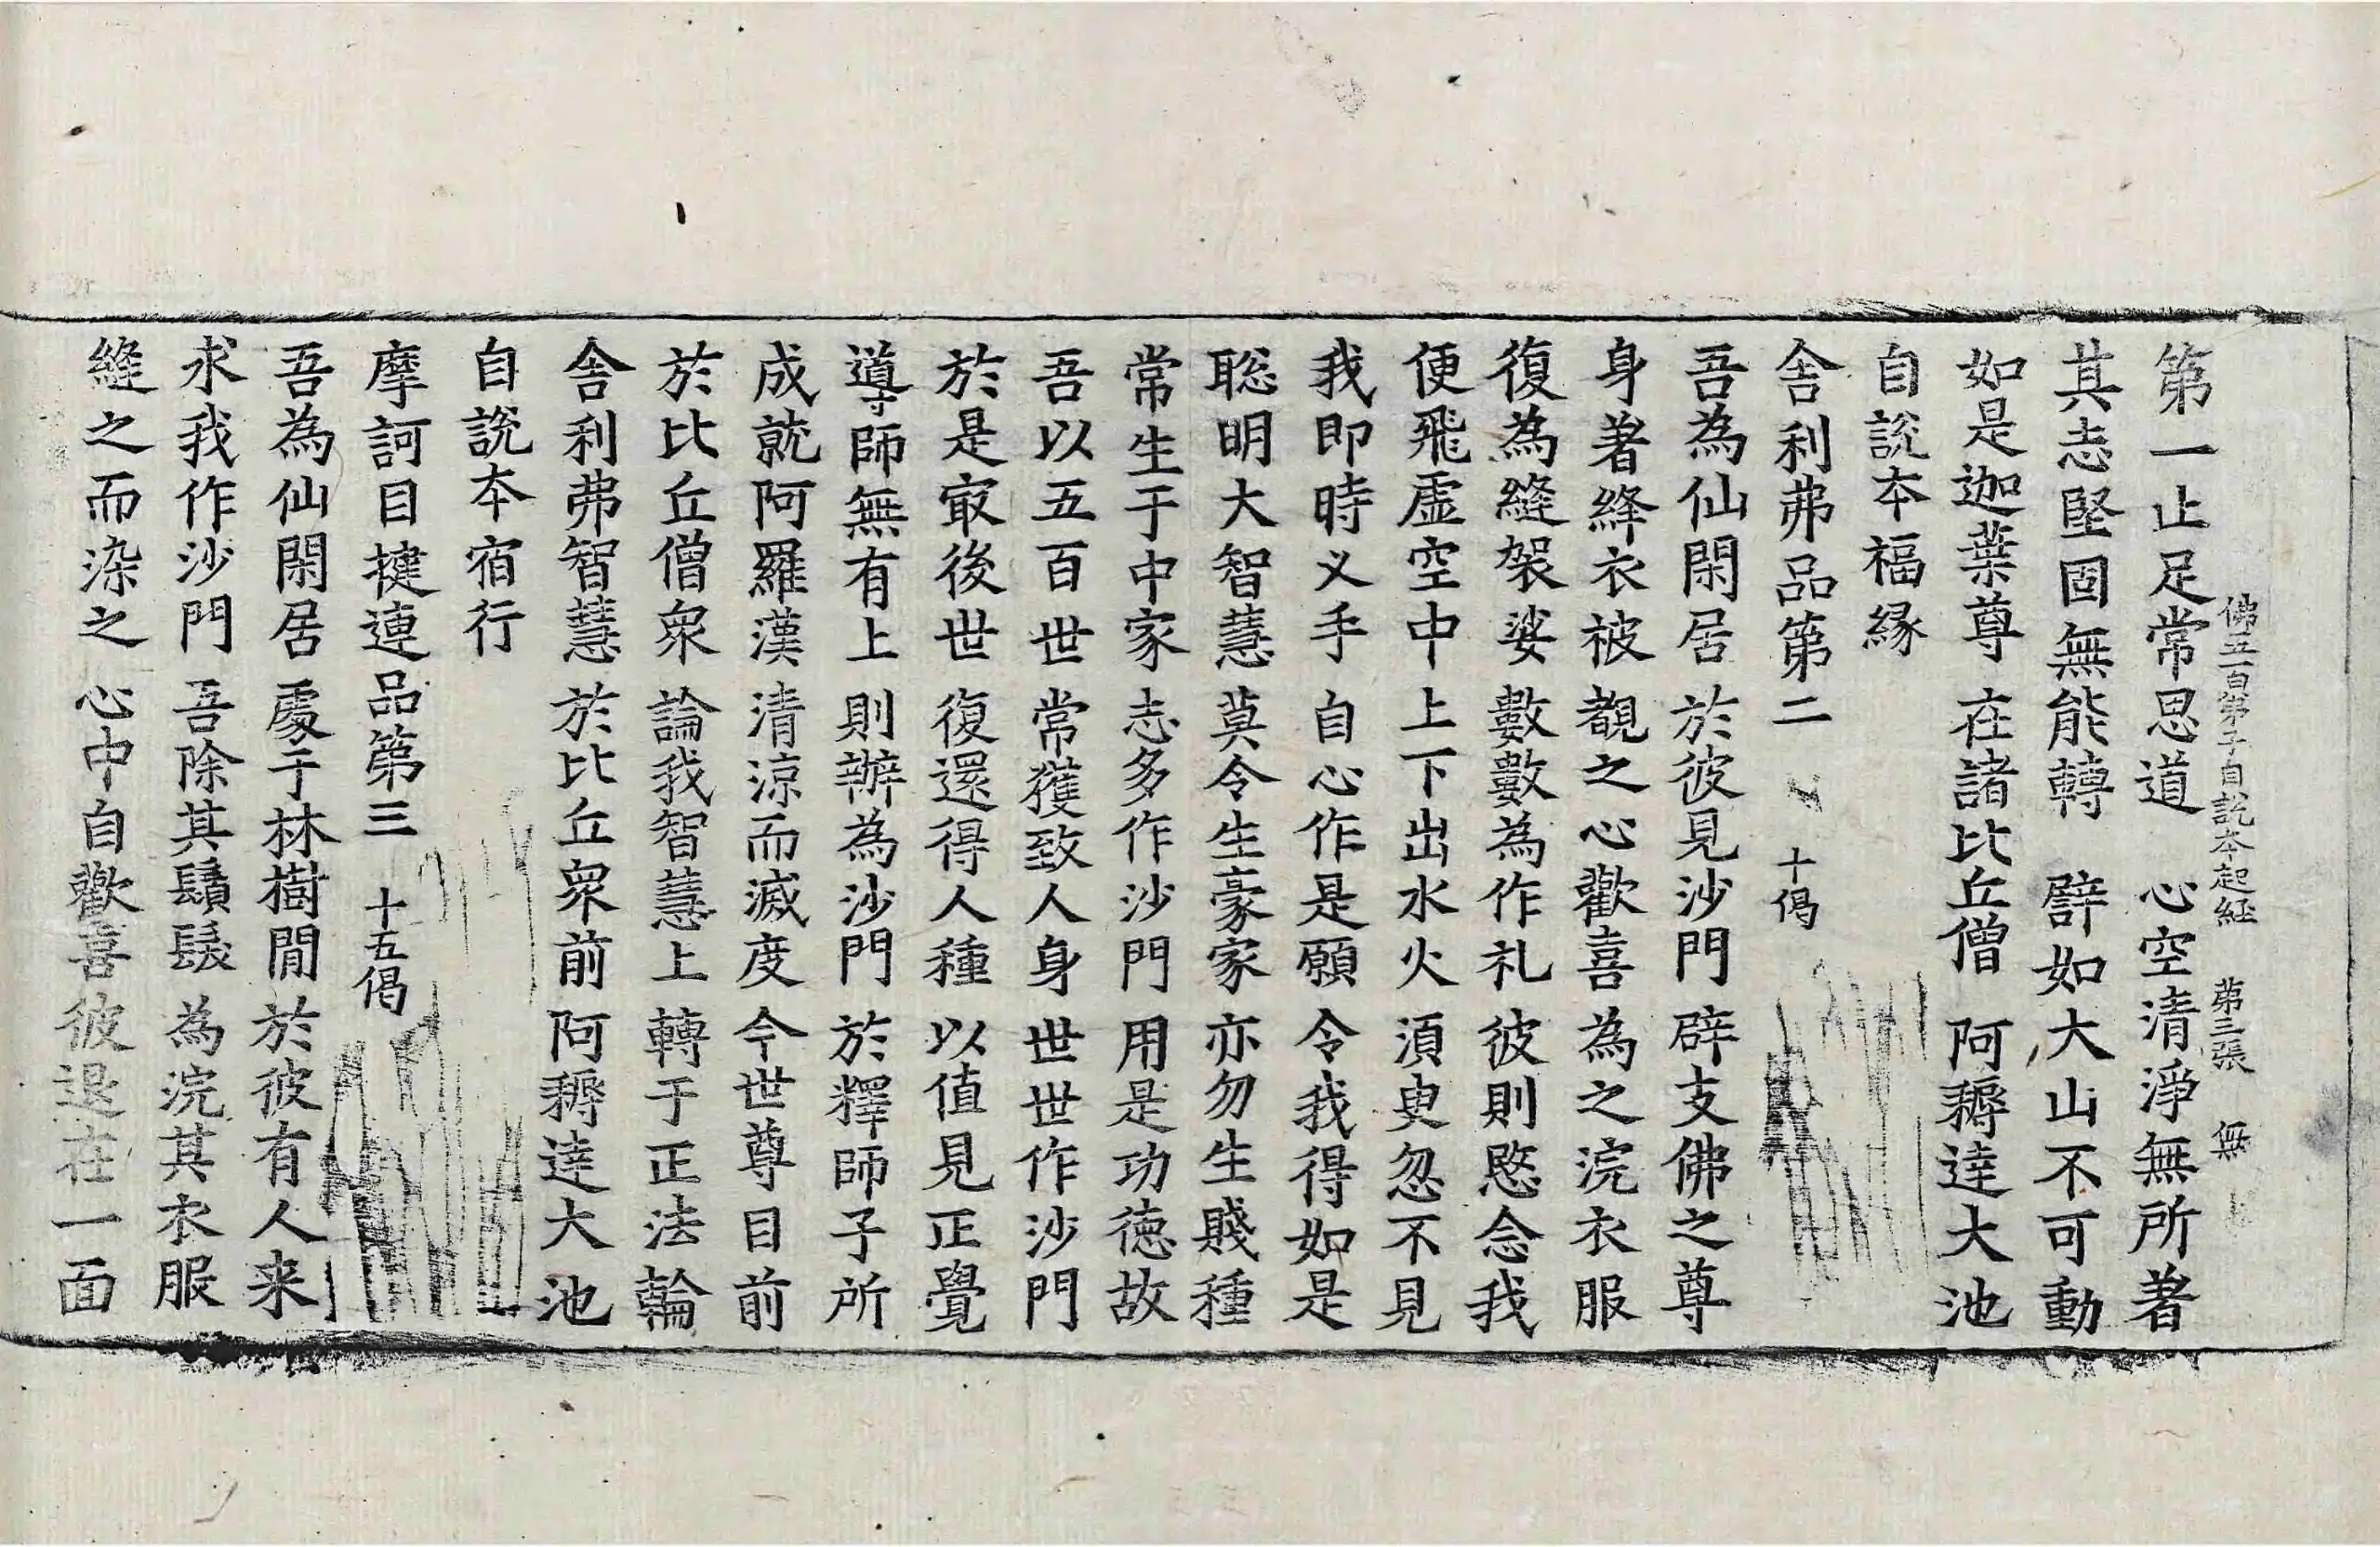 佛五百弟子自說本起経 第三張 無
第一止足常思道 心空清淨無所著
其志堅固無能轉 譬如大山不可動
如是迦葉尊 在諸比丘僧 阿耨達大池
自說本福緣
舍利弗品第二 十偈
吾為仙閑居 於彼見沙門 辟支佛之尊
身著絳衣被 覩之心歡喜 為之浣衣服
復為縫袈裟 數數為作礼 彼則愍念我
便飛虛空中 上下出水火 須臾忽不見
我即時叉手 自心作是願 令我得如是
聡明大智慧 莫令生豪家 亦勿生賤種
常生于中家 志多作沙門 用是功德故
吾以五百世 常獲致人身 世世作沙門
於是㝡後世 復還得人種 以值見正覺
導師無有上 則辦為沙門 於釋師子所
成就阿羅漢 清涼而滅度 今世尊目前
於比丘僧眾 論我智慧上 轉于正法輪
舍利弗智慧 於比丘眾前 阿耨達大池
自說本宿行
摩訶目揵連品第三 十五偈
吾為仙閑居 處于林樹間 於彼有人来
求我作沙門 吾除其鬚髮 為浣其衣服
縫之而染之 心中自歡喜 彼退在一面